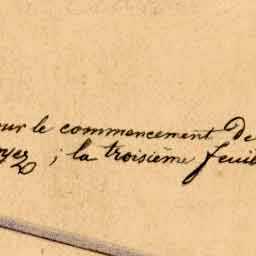 ur le commencement de
yez ; la troisième feuil